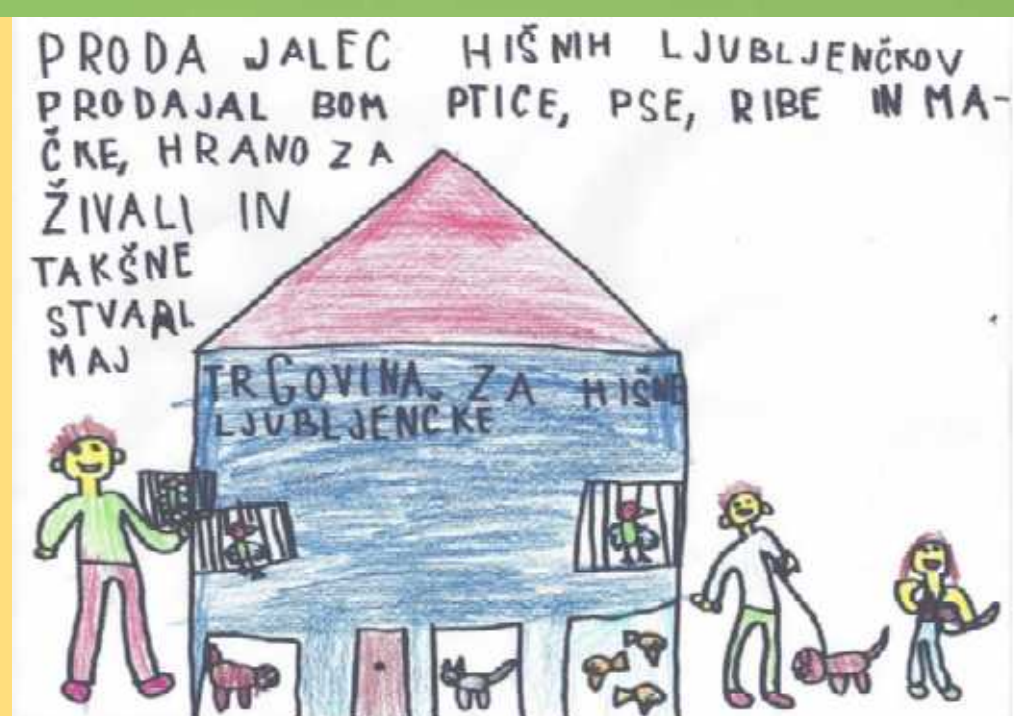 PRODAJALEC HIŠNIH LJUBLJENČKOV
PRODAJAL BOM PTICE, PSE, RIBE IN MA-
ČKE, HRANO ZA
ŽIVALI IN
TAKŠNE
STVARI
MAJ
TRGOVINA ZA HIŠNE
LJUBLJENČKE